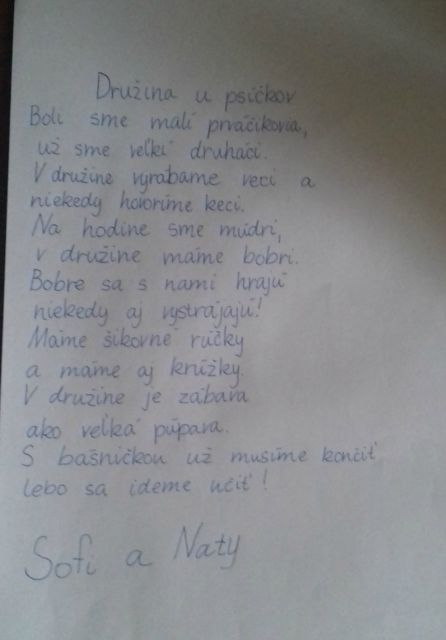 Družina u psíčkov
Boli sme malí prváčikovia,
už sme veľkí druháci.
V družine vyrábame veci a
niekedy hovoríme keci.
Na hodine sme múdri,
v družine máme bobri.
Bobre sa s nami hrajú
niekedy aj vystrájajú!
Máme šikovné rúčky
a máme aj krúžky.
V družine je zábava
ako veľká púpava.
S básničkou už musíme končiť
lebo sa ideme učiť!
Sofi a Naty